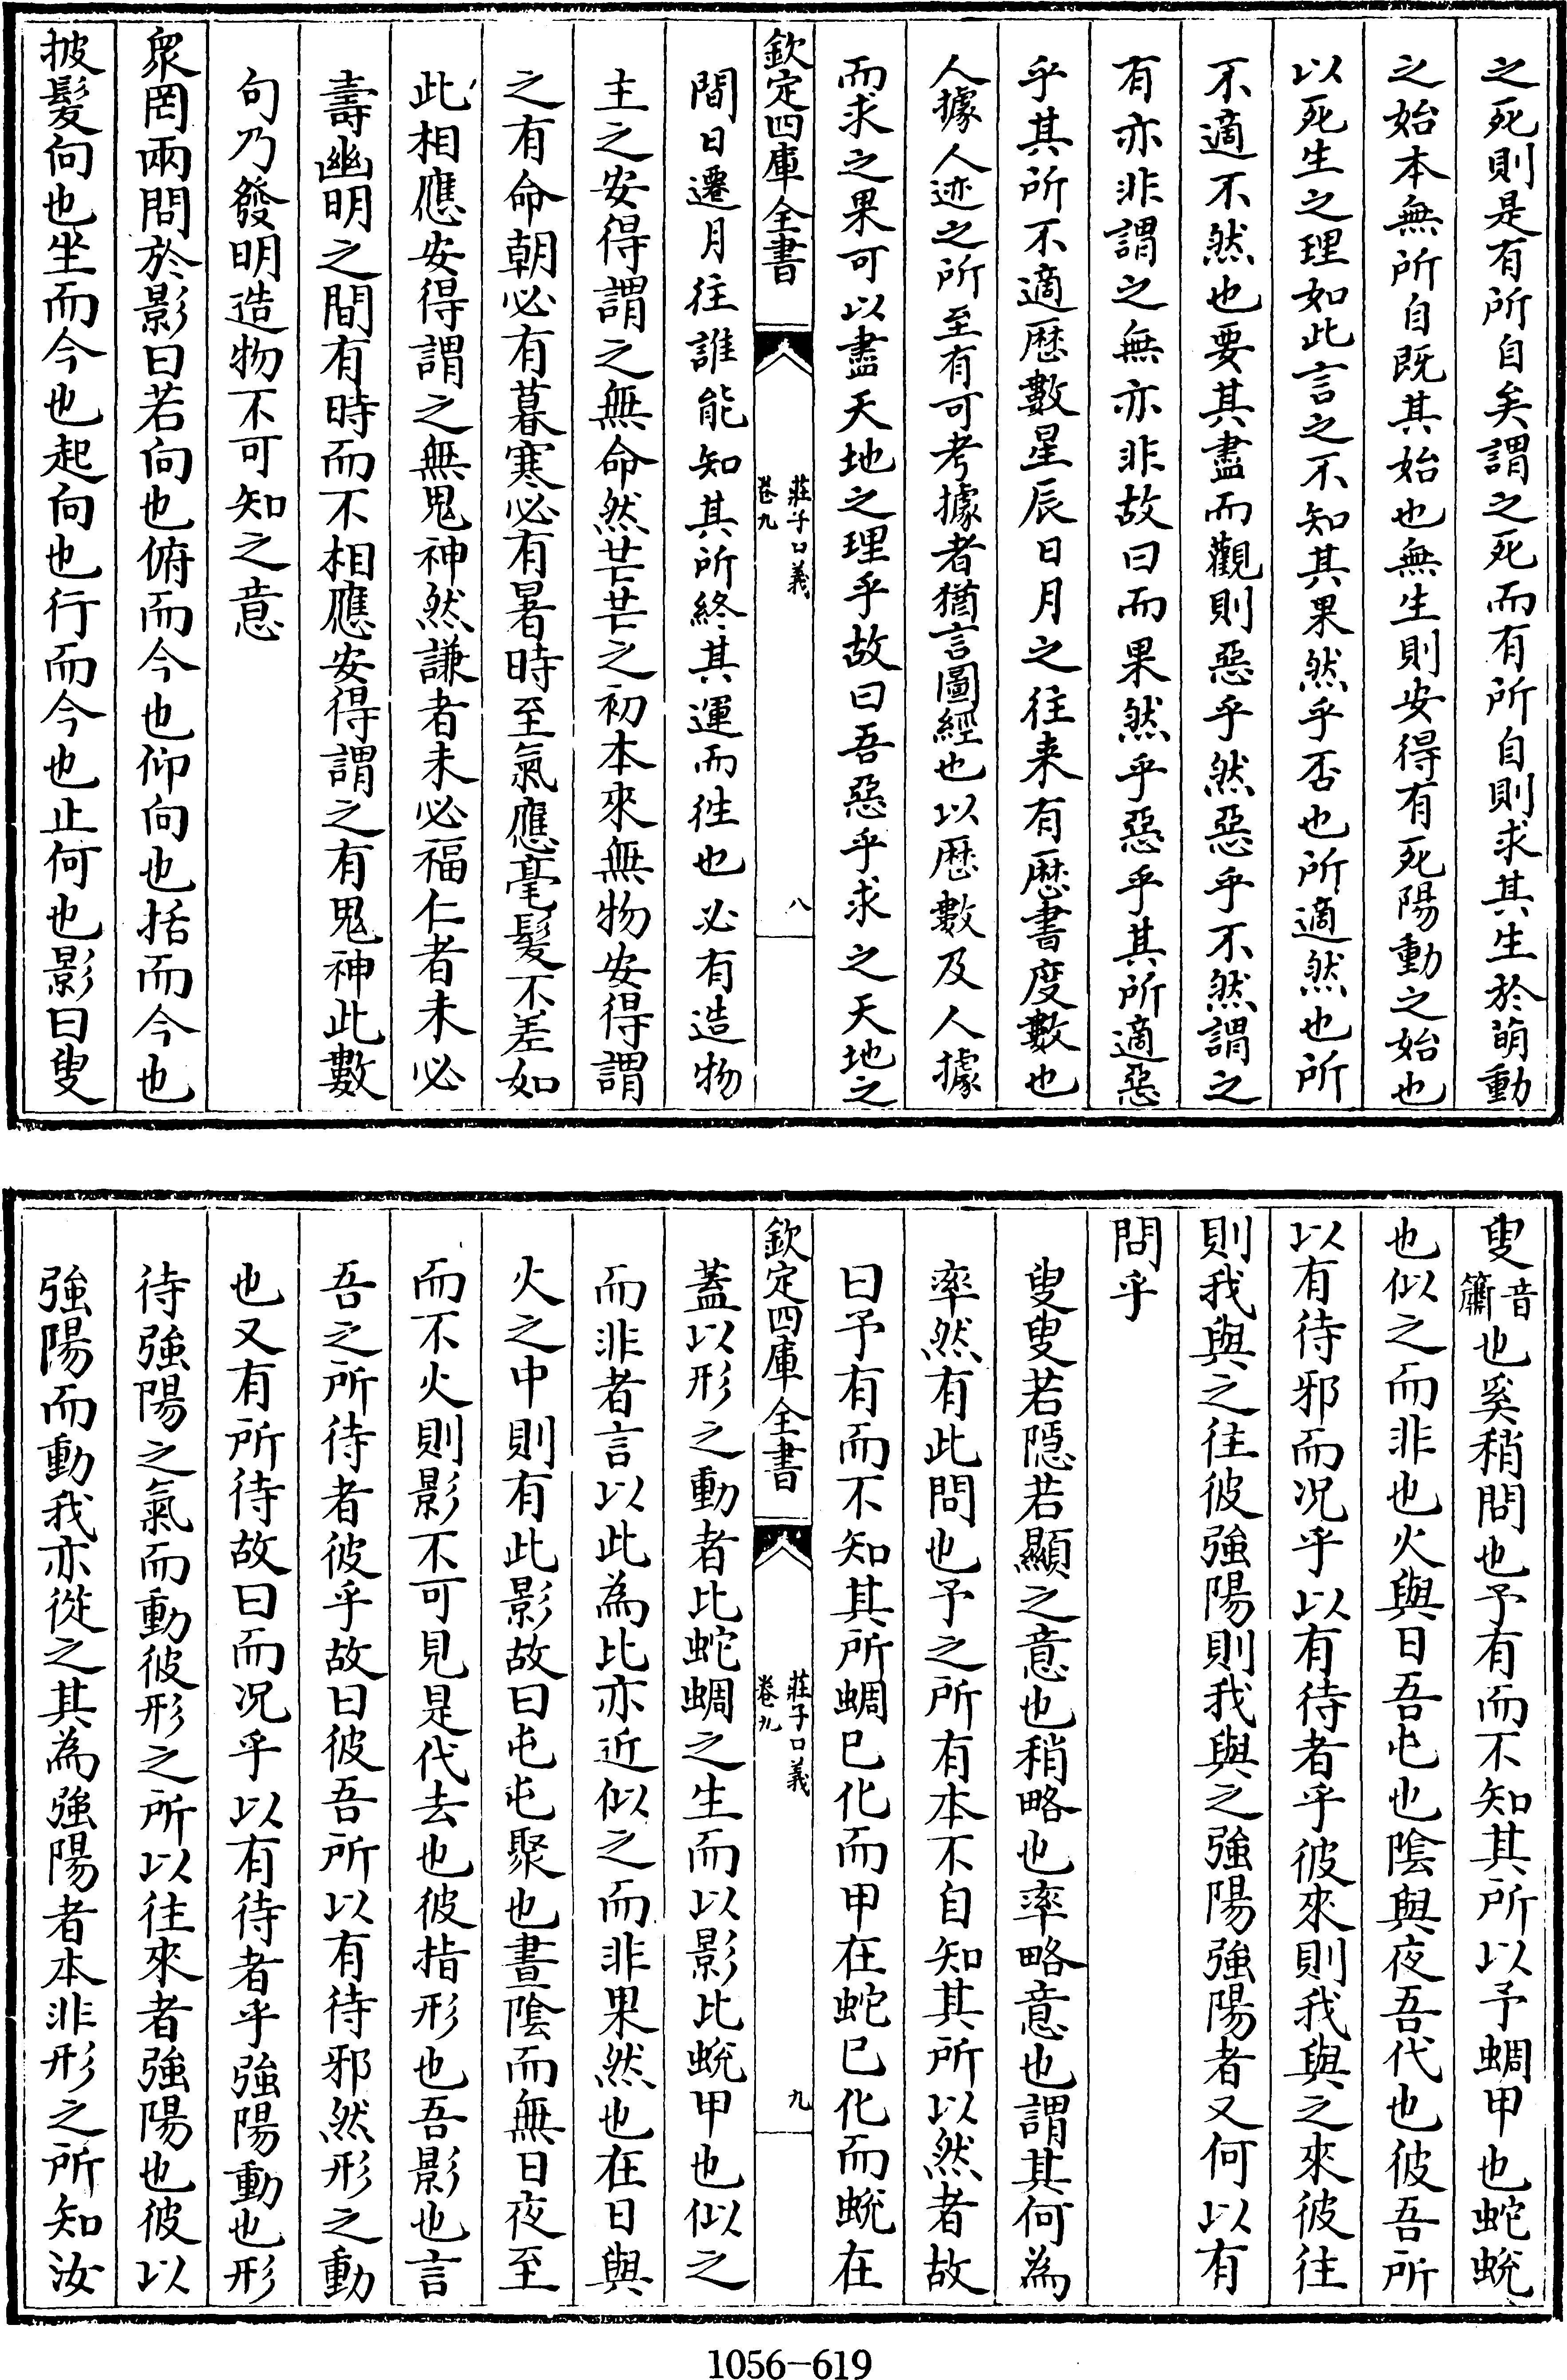 之死則是有所自矣謂之死而有所自則求其生於萌動
之始本無所自既其始也無生則安得有死陽動之始也
以死生之理如此言之不知其果然乎否也所適然也所
不適不然也要其盡而觀則惡乎然惡乎不然謂之
有亦非謂之無亦非故曰而果然乎惡乎其所適惡
乎其所不適厯數星辰日月之往来有厯書度數也
人據人迹之所至有可考據者猶言圖經也以厯數及人據
而求之果可以盡天地之理乎故曰吾惡乎求之天地之
欽定四庫全書
莊子口義
卷九
八
間日遷月往誰能知其所終其運而徃也必有造物
主之安得謂之無命然芒芒之初本來無物安得謂
之有命朝必有暮寒必有暑時至氣應毫髮不差如
此相應安得謂之無鬼神然謙者未必福仁者未必
壽幽明之間有時而不相應安得謂之有鬼神此數
句乃發明造物不可知之意
衆罔兩問於影曰若向也俯而今也仰向也括而今也
披髮向也坐而今也起向也行而今也止何也影曰叟
叟音簫也奚稍問也予有而不知其所以予蜩甲也蛇蛻
也似之而非也火與日吾屯也陰與夜吾代也彼吾所
以有待邪而况乎以有待者乎彼來則我與之來彼往
則我與之往彼強陽則我與之強陽強陽者又何以有
問乎
叟叟若隱若顯之意也稍略也率略意也謂其何為
率然有此問也予之所有本不自知其所以然者故
曰予有而不知其所蜩已化而甲在蛇已化而蛻在
欽定四庫全書
莊子口義
卷九
九
蓋以形之動者比蛇蜩之生而以影比蛻甲也似之
而非者言以此為比亦近似之而非果然也在日與
火之中則有此影故曰屯屯聚也晝陰而無日夜至
而不火則影不可見是代去也彼指形也吾影也言
吾之所待者彼乎故曰彼吾所以有待邪然形之動
也又有所待故曰而况乎以有待者乎強陽動也形
待強陽之氣而動彼形之所以往來者強陽也彼以
強陽而動我亦從之其為強陽者本非形之所知汝
1056-619